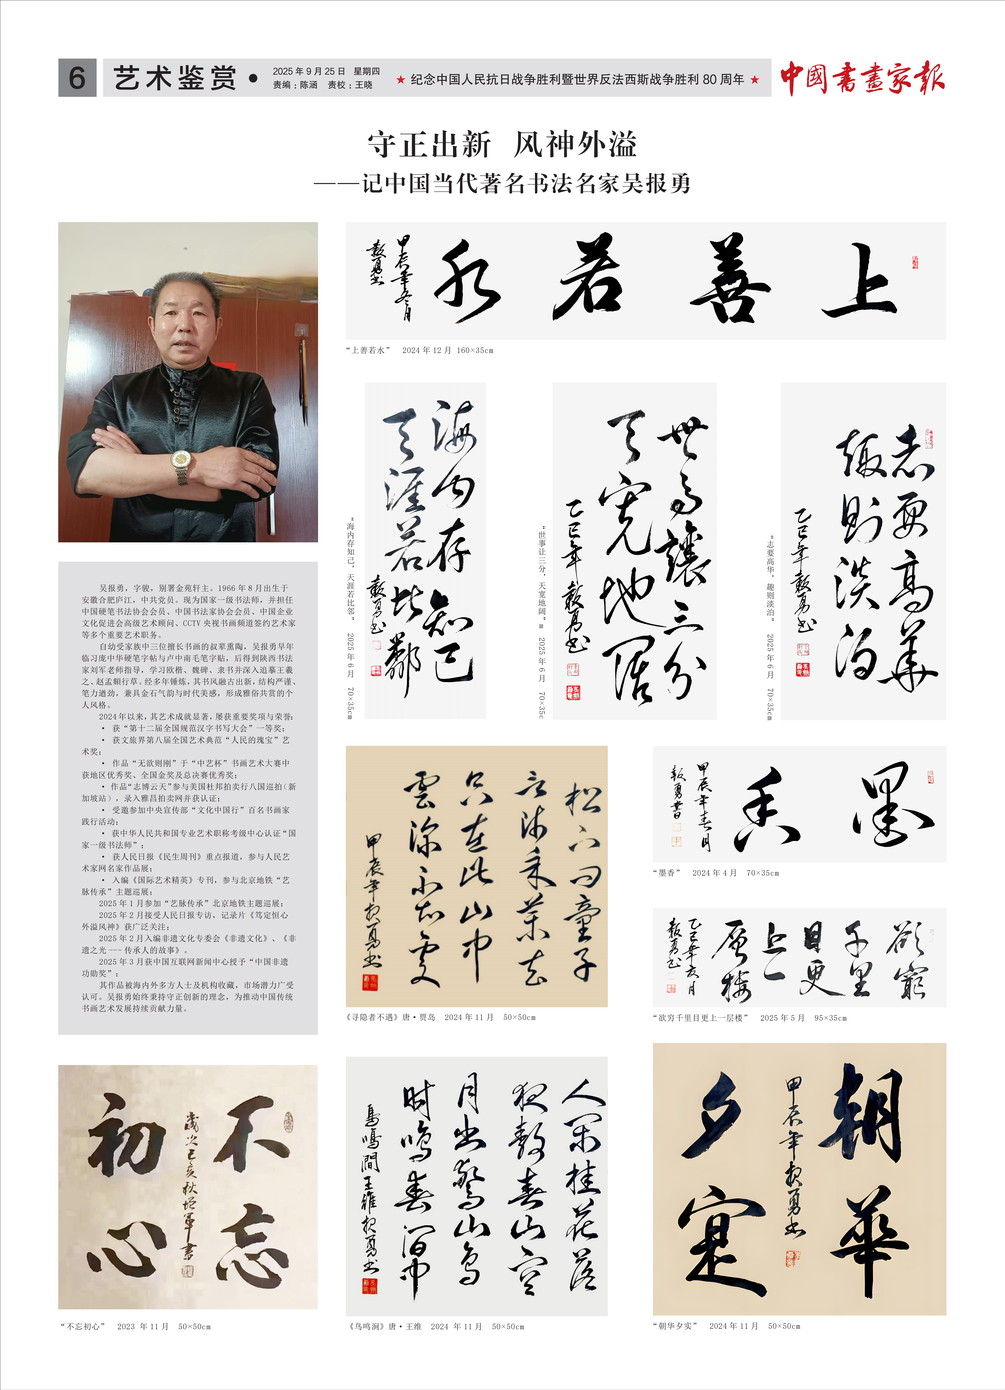 6
艺术鉴赏 ●
2025年9月25日 星期四
责编：陈涵 责校：王晓
★ 纪念中国人民抗日战争胜利暨世界反法西斯战争胜利80周年 ★
中國書畫家報
守正出新 风神外溢
——记中国当代著名书法名家吴报勇
上善若水
甲辰年冬月
報勇书
“上善若水” 2024年12月 160×35cm
海内存知己
天涯若比鄰
報勇书
“海内存知己，天涯若比邻” 2025年6月 70×35cm
世事讓三分
天宽地阔
乙巳年報勇书
“世事让三分，天宽地阔” 2025年6月 70×35c
志要高華
趣则淡泊
乙巳年報勇书
“志要高华，趣则淡泊” 2025年6月 70×35cm
吴报勇，字骏，别署金苑轩主。1966年8月出生于
安徽合肥庐江，中共党员。现为国家一级书法师，并担任
中国硬笔书法协会会员、中国书法家协会会员、中国企业
文化促进会高级艺术顾问、CCTV央视书画频道签约艺术家
等多个重要艺术职务。
自幼受家族中三位擅长书画的叔辈熏陶，吴报勇早年
临习庞中华硬笔字帖与卢中南毛笔字贴，后得到陕西书法
家刘军老师指导，学习欧楷、魏碑、隶书并深入追摹王羲
之、赵孟頫行草。经多年锤炼，其书风融古出新，结构严谨、
笔力遒劲，兼具金石气韵与时代美感，形成雅俗共赏的个
人风格。
2024年以来，其艺术成就显著，屡获重要奖项与荣誉：
· 获“第十二届全国规范汉字书写大会”一等奖；
· 获文旅界第八届全国艺术典范“人民的瑰宝”艺
术奖；
· 作品“无欲则刚”于“中艺杯”书画艺术大赛中
获地区优秀奖、全国金奖及总决赛优秀奖；
· 作品“志博云天”参与美国杜邦拍卖行八国巡拍（新
加坡站），录入雅昌拍卖网并获认证；
· 受邀参加中央宣传部“文化中国行”百名书画家
践行活动；
· 获中华人民共和国专业艺术职称考级中心认证“国
家一级书法师”；
· 获人民日报《民生周刊》重点报道，参与人民艺
术家网名家作品展；
· 入编《国际艺术精英》专刊，参与北京地铁“艺
脉传承”主题巡展；
2025年1月参加“艺脉传承”北京地铁主题巡展；
2025年2月接受人民日报专访，记录片《笃定恒心
外溢风神》获广泛关注；
2025年2月入编非遗文化专委会《非遗文化》、《非
遗之光——传承人的故事》。
2025年3月获中国互联网新闻中心授予“中国非遗
功勋奖”；
其作品被海内外多方人士及机构收藏，市场潜力广受
认可。吴报勇始终秉持守正创新的理念，为推动中国传统
书画艺术发展持续贡献力量。
松下问童子
言师采药去
只在此山中
雲深不知處
甲辰年报勇书
《寻隐者不遇》唐·贾岛 2024年11月 50×50cm
墨香
甲辰年春月
報勇書
“墨香” 2024年4月 70×35cm
欲窮
千里
目更
上一
层楼
乙巳年六月
報勇书
“欲穷千里目更上一层楼” 2025年5月 95×35cm
不忘
初心
歲次己亥秋
軍書
“不忘初心” 2023年11月 50×50cm
人闲桂花落
夜静春山空
月出驚山鸟
时鸣春涧中
鳥鳴澗王維报勇书
《鸟鸣涧》唐·王维 2024年11月 50×50cm
朝華
夕實
甲辰年报勇书
“朝华夕实” 2024年11月 50×50cm